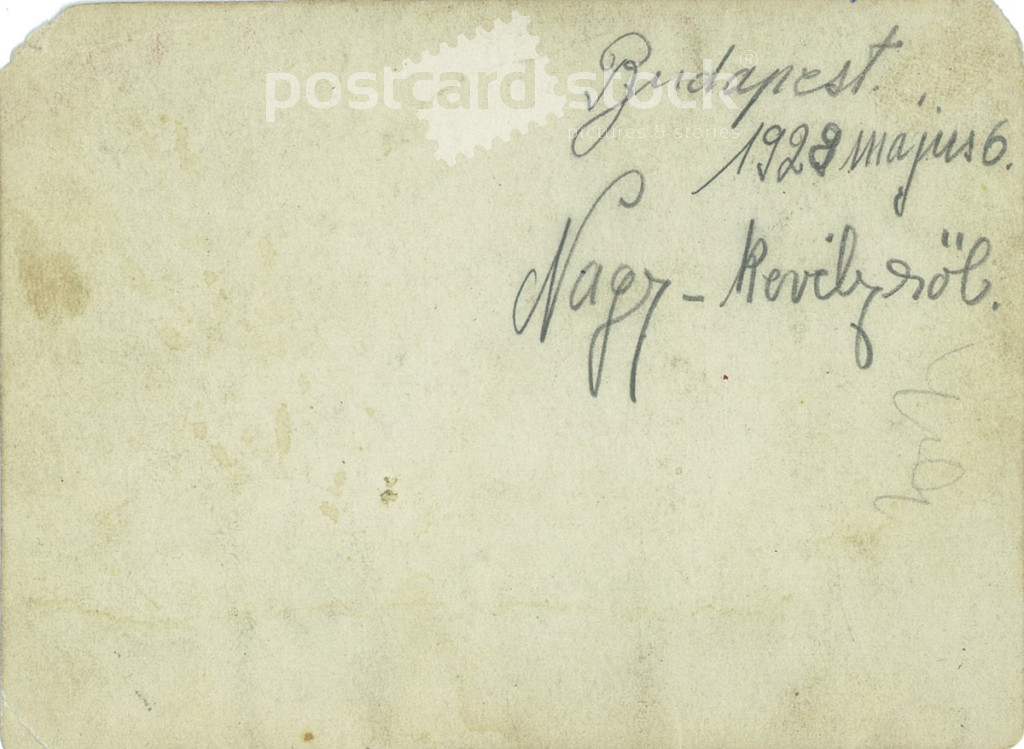 postcardstock®
pictures & stories
Budapest.
1928 május 6.
Nagy-kevélyről.